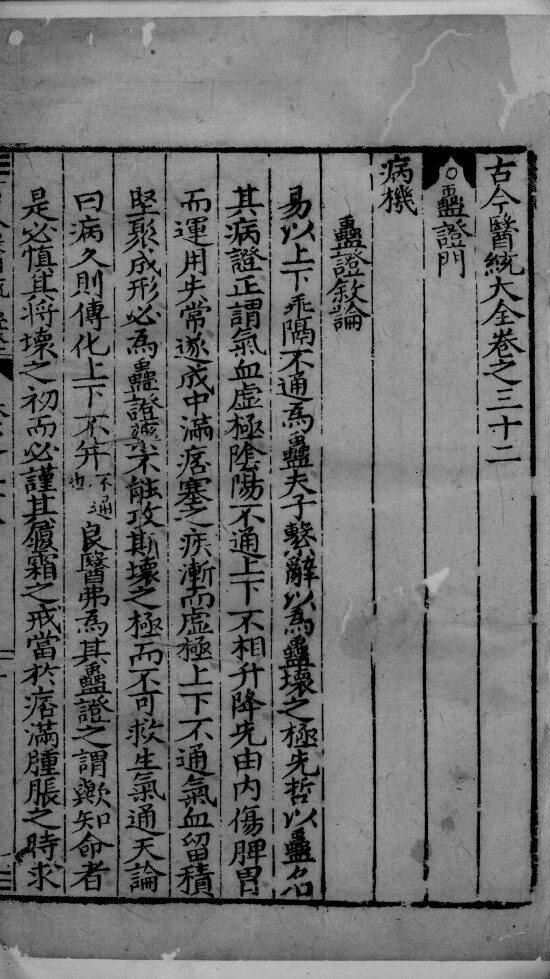 古今醫統大全卷之三十二
○蠱證門
病機
蠱證敘論
易以上下乖隔不通為蠱夫子繫辭以為蠱壞之極先哲以蠱名
其病證正謂氣血虛極陰陽不通上下不相升降先由內傷脾胃
而運用失常遂成中滿痞塞之疾漸而虛極上下不通氣血留積
堅聚成形必為蠱證藥不能攻斯壞之極而不可救生氣通天論
曰病久則傳化上下不并不通也良醫弗為其蠱證之謂歟知命者
是必慎其將壞之初而必謹其履霜之戒當於痞滿腫脹之時求